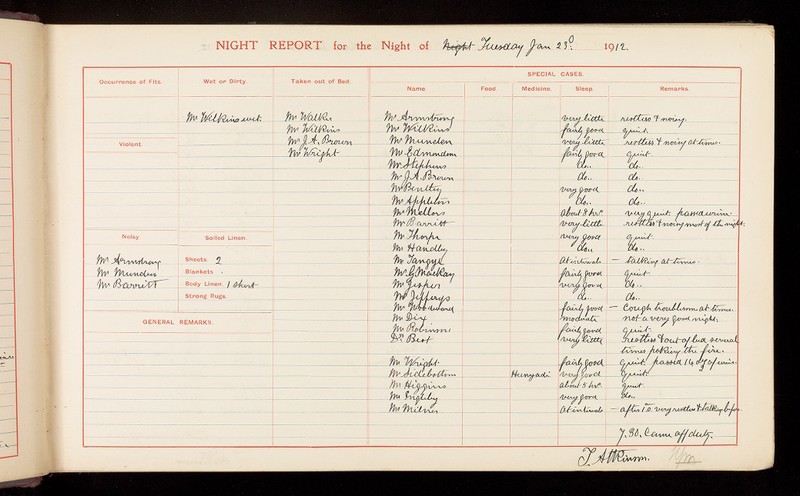 NIGHT REPORT for the Night of Night Tuesday Jan 23d. 1912.
SPECIAL CASES.
Occurrence of Fits. Wet or Dirty. Taken out of Bed. Name Food. Medicine. Sleep. Remarks.
Mr Wilkins wet. Mr Walker Mr Armstrong very little restless & noisy.
Mr Wilkins Mr Wilkins fairly good quiet.
Violent. Mr J.A. Brown Mr Munden very little restless & noisy at times.
Mr Wright Mr Edmondson fairly good quiet.
Mr Stephens do.. do..
Mr J.A. Brown do.. do.
Mr Bentley very good do..
Mr Appleton do.. do..
Mr Mellors about 8 hrs very quiet. passed urine.
Mr Barritt very little restless & noisy most of the night.
Noisy Soiled Linen. Mr Thorpe very good quiet.
Mr Handley do.. do..
Mr Armstrong Sheets. 2 Mr Tangye at intervals — talking at times.
Mr Munden Blankets Mr G. Mackay fairly good quiet
Mr Barritt Body Linen. 1 shirt Mr very good do..
Strong Rugs. Mr Jefferys do.. do..
Mr Woodward fairly good — cough troublesome at times.
GENERAL REMARKS. Mr Dix moderate not a very good night.
Mr Robinson fairly good quiet.
Dr Best very little restless & out of bed several
times poking the fire.
Mr Wright fairly good quiet. passed 14 oz of urine.
Mr Sidebottom Hunyadi very good quiet.
Mr Higgins about 5 hrs quiet
Mr Ingleby very good do..
Mr Milner at intervals — after 1.0 very restless & talking before.
7.30. Came off duty.
T. Atkinson.